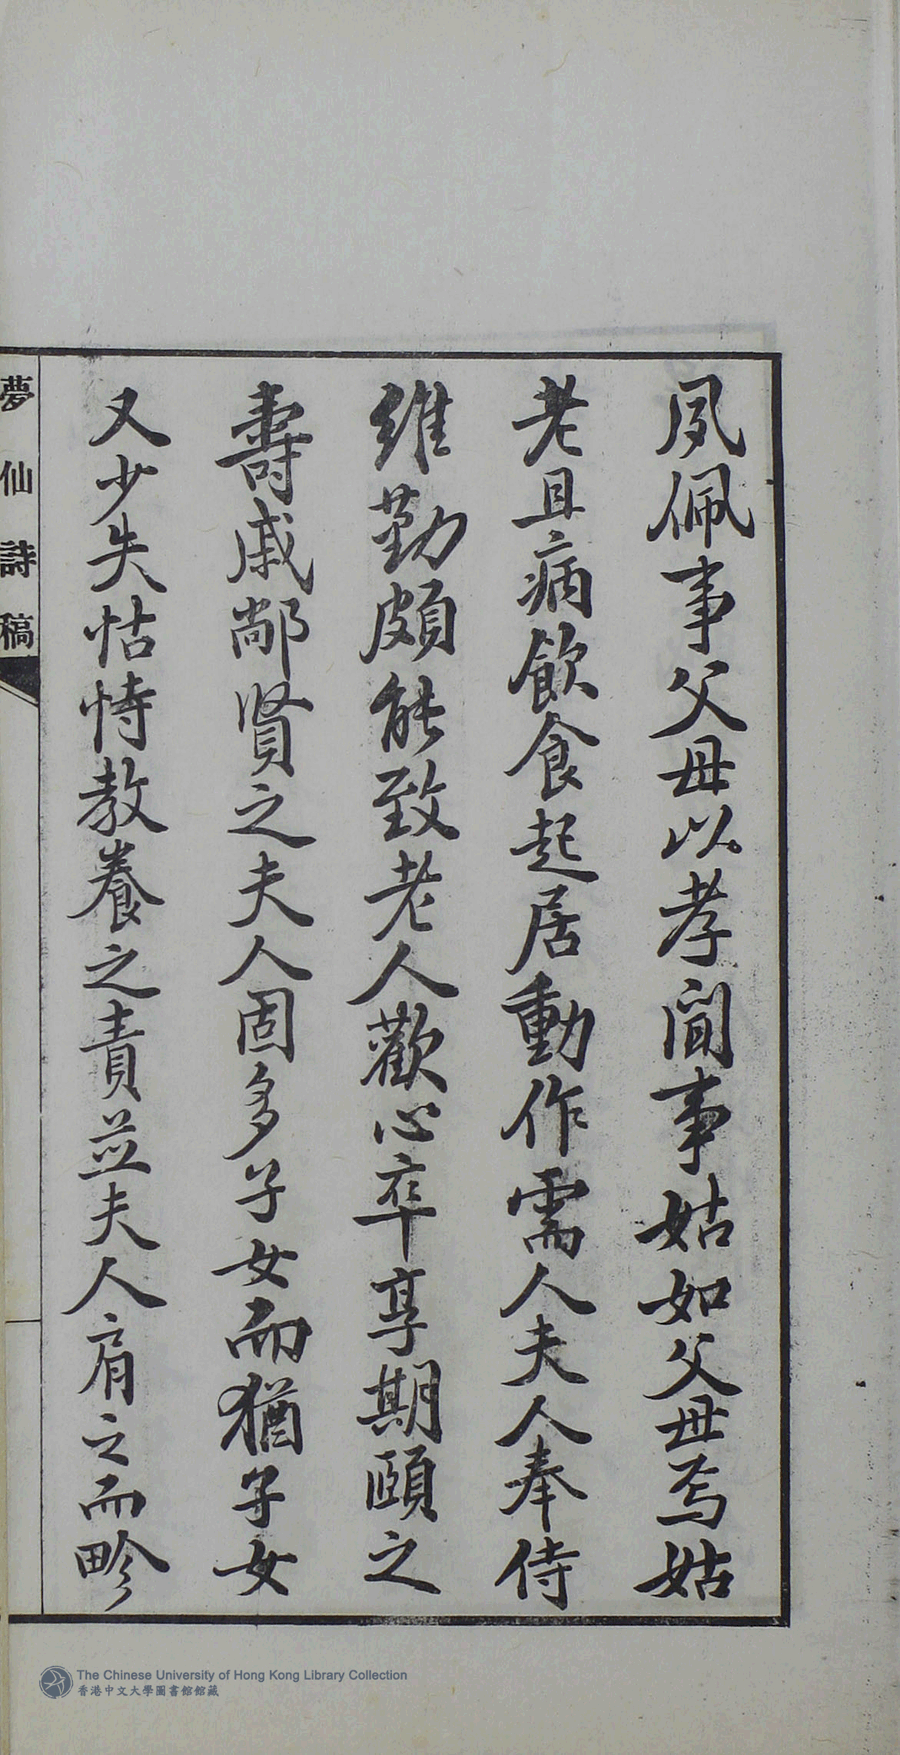 夙佩事父母以孝聞事姑如父母焉姑
老且病飲食起居動作需人夫人奉侍
維勤頗能致老人歡心卒享期頤之
壽戚鄰賢之夫人固多子女而猶子女
又少失怙恃教養之責並夫人肩之而畛
夢仙詩稿
The Chinese University of Hong Kong Library Collection
香港中文大學圖書館館藏